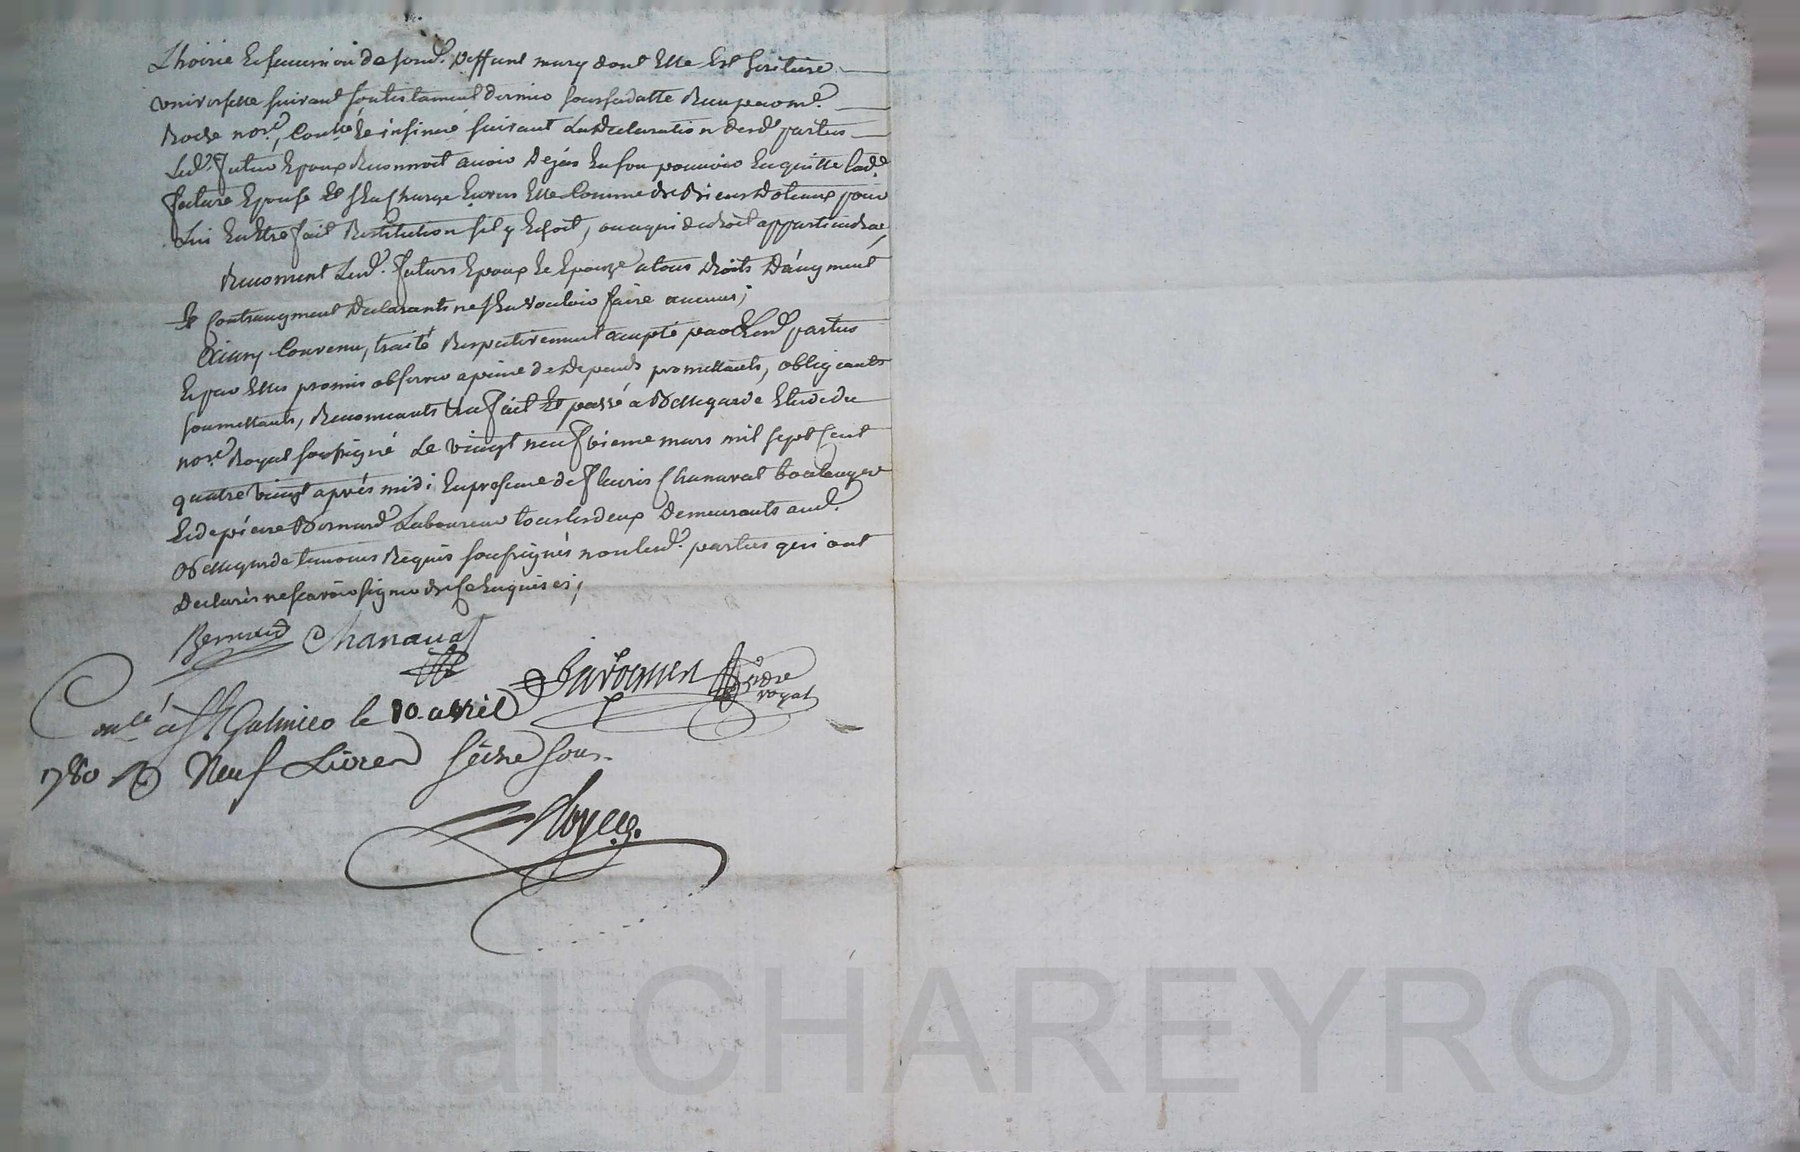 L'hoirie et succession de sond. deffunt mary dont elle est heritiere
universelle suivant son testament dernier sous sa datte Recu par me.
Roche nore., controlé et insinué suivant la declaration desd. parties
Led. futur Epoux Reconnoit avoir deja en son pouvoir en quitte lad.
future Epouse et s'en charge envers elle comme de Biens dotaux pour
lui en etre fait Restitution s'il y echoit, ou a qui de droit appartiendra,
Renoncent lesd. futurs Epoux et Epouze a tous droits d'augment
et contraugment declarants ne s'en vouloir faire aucuns;
Ainsy convenu, traité Respectivement accepté par lesd. parties
et par elles promis observer a peine de depends promettants, obligeants
soumettants, Renonceants &a fait et passé a Bellegarde Etude du
nore. Royal soussigné le vingt neufvieme mars mil sept cent
quatre vingt après midi en presence de fleuris Chanavat boulanger
et de pierre Bernard Laboureur tous les deux demeurants aud.
Bellegarde temoins Requis soussignés non lesd. parties qui ont
declarés ne scavoir signer de ce enquises;
Bernard Chanavat
nore royal
Conlé à St Galmier le 10 avril
1780 R Neuf Livres seize sous
Pascal CHAREYRON